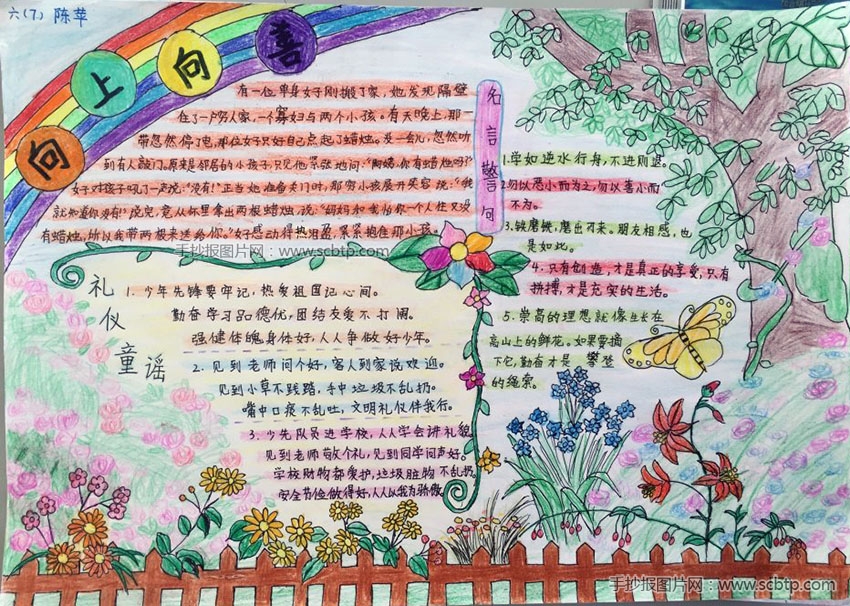 六(7) 陈苹
向上向善
有一位单身女子刚搬了家，她发现隔壁
住了一户穷人家，一个寡妇与两个小孩。有天晚上，那一
带忽然停了电，那位女子只好自己点起了蜡烛。没一会儿，忽然听
到有人敲门。原来是邻居的小孩子，只见他紧张地问："阿姨，你有蜡烛吗？"
女子对孩子吼了一声说："没有！"正当她准备关门时，那穷小孩展开笑容说："我
就知道你没有！"说完，竟从怀里拿出两根蜡烛，说："妈妈和我怕你一个人住又没
有蜡烛，所以我带两根来送给你。"女子感动得热泪盈，紧紧抱住那小孩。
手抄报图片网：www.scbtp.com
名言警句
1.学如逆水行舟，不进则退。
2.勿以恶小而为之，勿以善小而
不为。
3.铁磨铁，磨出刃来。朋友相感，也
是如此。
4.只有创造，才是真正的享受，只有
拼搏，才是充实的生活。
5.崇高的理想就像生长在
高山上的鲜花。如果要摘
下它，勤奋才是攀登
的绳索。
礼仪童谣
1.少年先锋要牢记，热爱祖国记心间。
勤奋学习品德优，团结友爱不打闹。
强健体魄身体好，人人争做好少年。
2.见到老师问个好，客人到家说欢迎。
见到小草不践踏，手中垃圾不乱扔。
嘴中口痰不乱吐，文明礼仪伴我行。
3.少先队员进学校，人人学会讲礼貌
见到老师敬个礼，见到同学问声好。
学校财物都爱护，垃圾脏物不乱扔
安全节俭做得好，人人以我为骄傲
手抄报图片网：www.scbtp.com